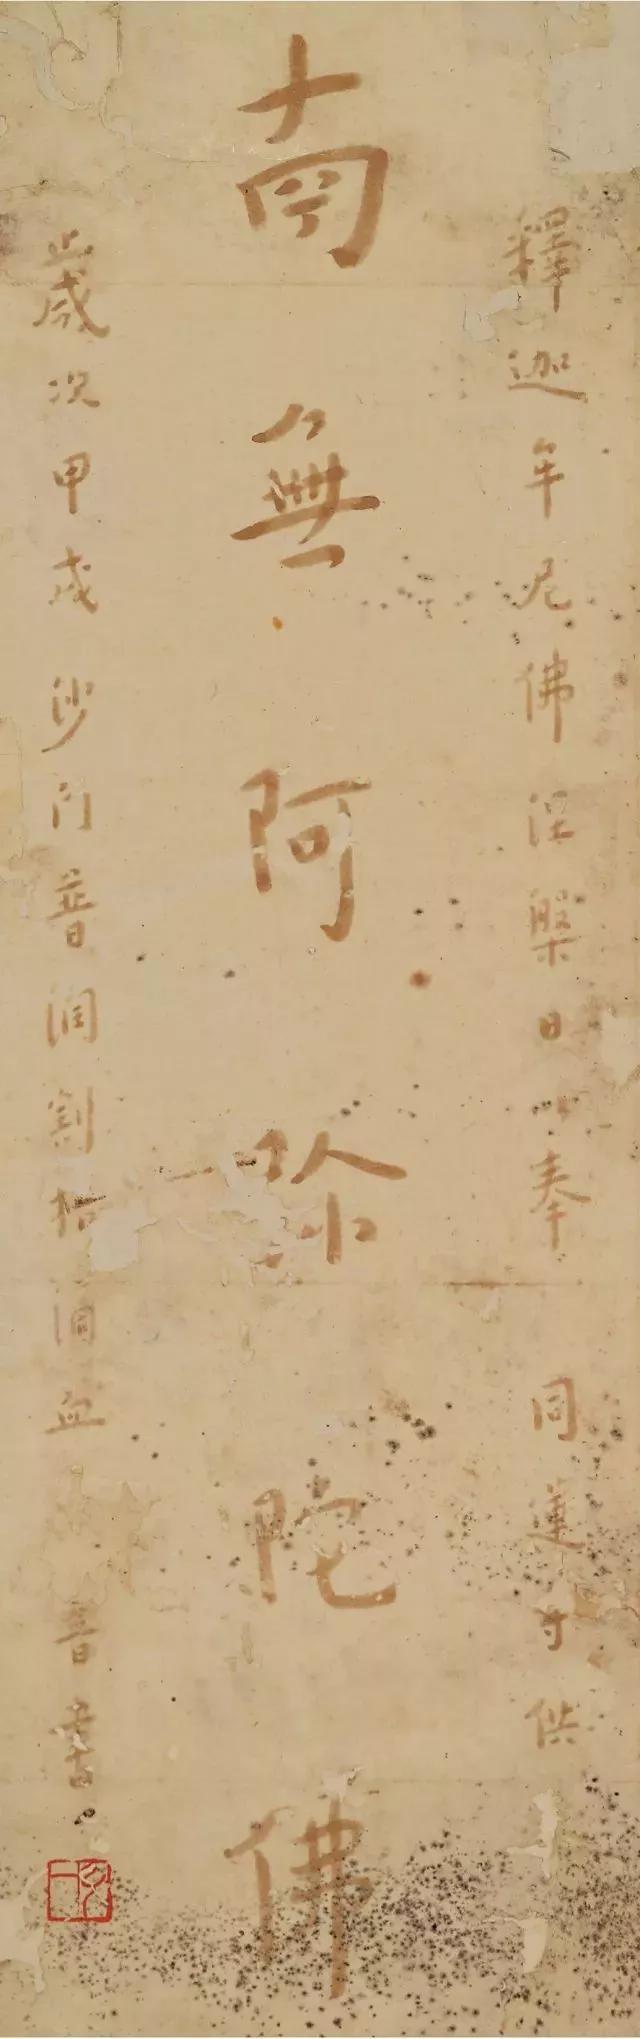 釋迦牟尼佛涅槃日 奉 同蓮寺供
南無阿彌陀佛
歲次甲戌沙門普潤割指瀝血 書